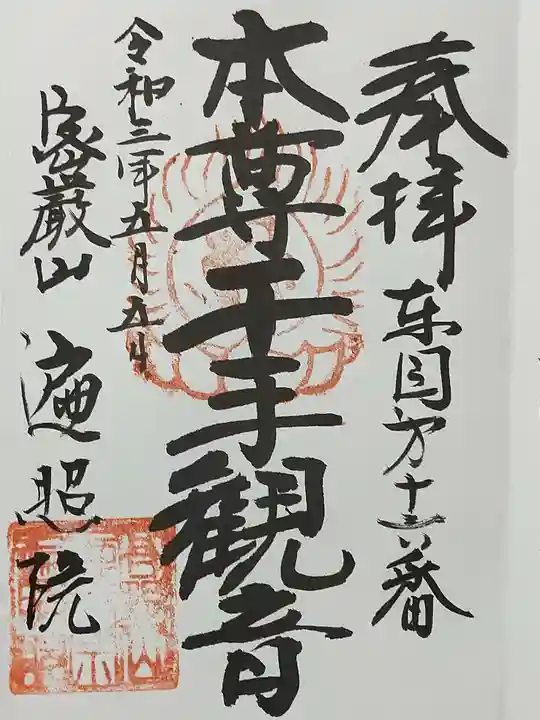 奉拝 东国方十二番
本尊千手観音
令和三年五月五日
密厳山 遍照院